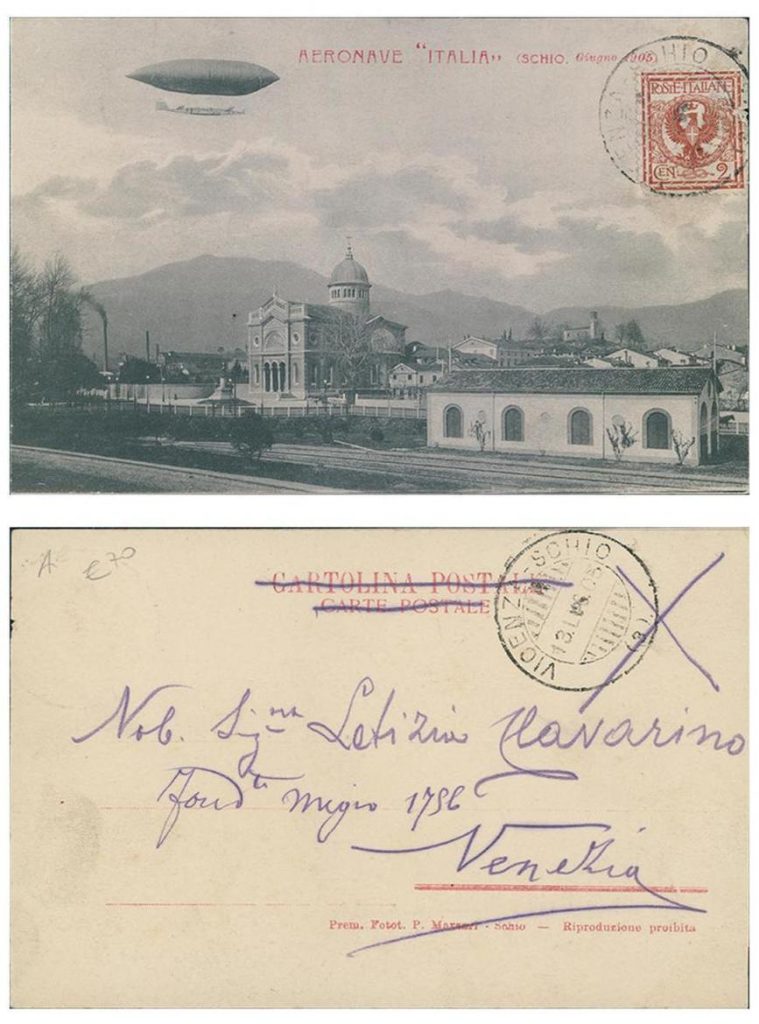 AERONAVE "ITALIA" (SCHIO, Giugno 1905)
POSTE ITALIANE
CEN 2
SCHIO
A €70
CARTOLINA POSTALE
CARTE POSTALE
VICENZA-SCHIO
(3)
Nob. Sig.na Letizia Navarino
Fond.ta Megio 1756
Venezia
Prem. Fotot. P. - Schio — Riproduzione proibita